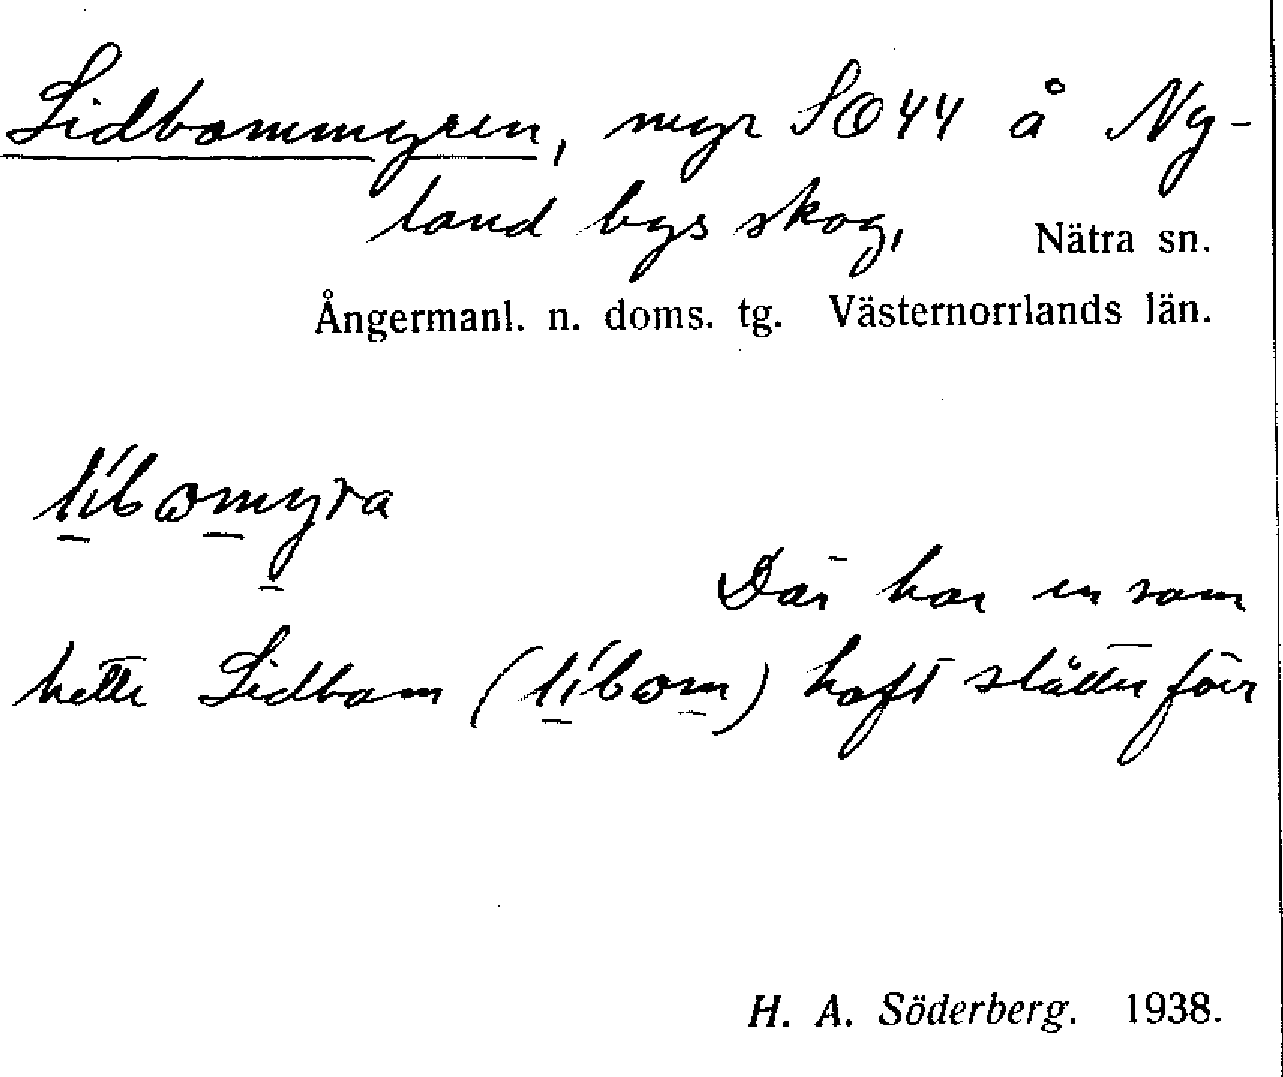 Lidbommyren, myr SO 44 å Ny-
land bys skog, Nätra sn.
Ångermanl. n. doms. tg. Västernorrlands län.
líbomyra
Där har en som
hette Lidbom (líbom) haft slåtter förr
H. A. Söderberg. 1938.